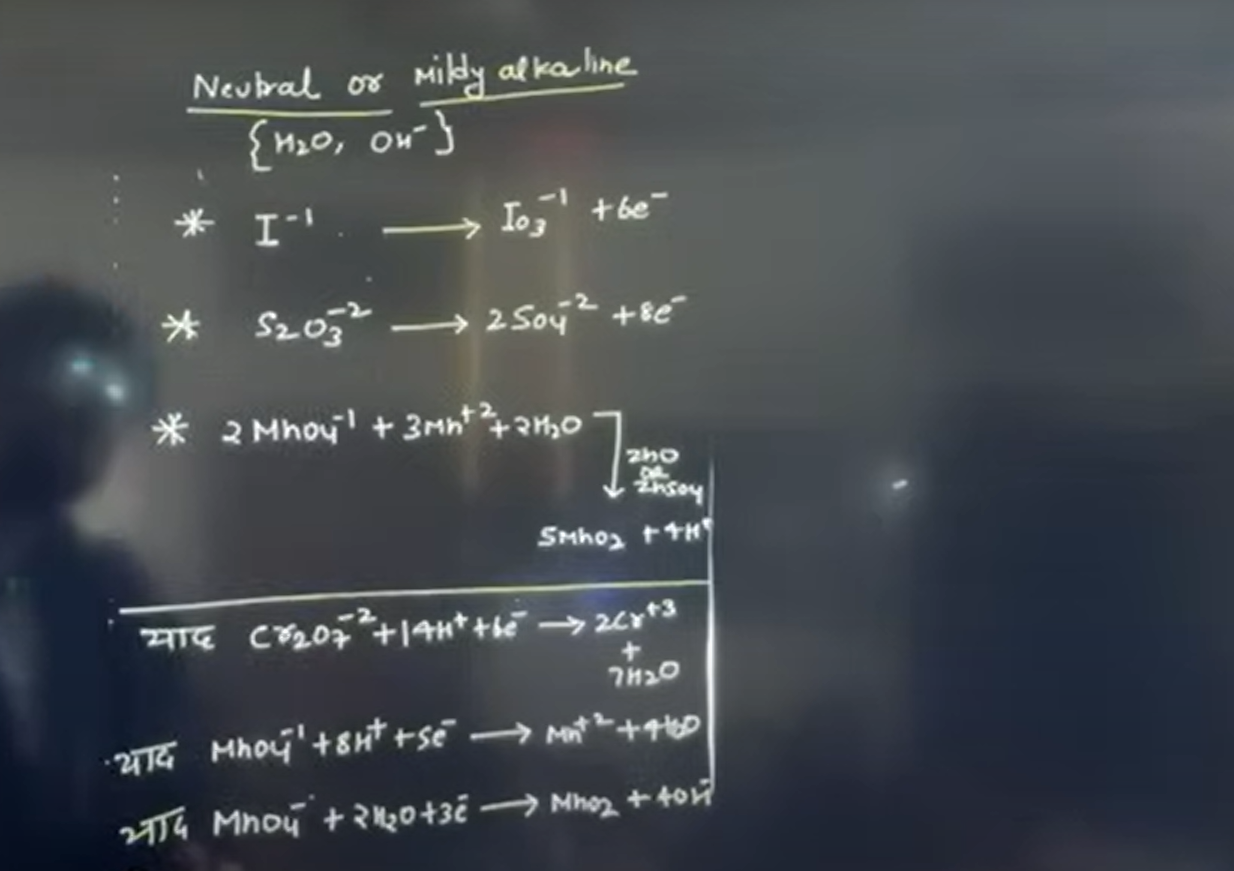 Neutral or Mildy alkaline
{H₂O, OH⁻}
* I⁻¹ ⟶ IO₃⁻¹ + 6e⁻
* S₂O₃⁻² ⟶ 2SO₄⁻² + 8e⁻
* 2MnO₄⁻¹ + 3Mn⁺² + 2H₂O
ZnO
OR
ZnSO₄
5MnO₂ + 4H⁺
याद Cr₂O₇⁻² + 14H⁺ + 6e⁻ ⟶ 2Cr⁺³
+
7H₂O
याद MnO₄⁻¹ + 8H⁺ + 5e⁻ ⟶ Mn⁺² + 4H₂O
याद MnO₄⁻ + 2H₂O + 3e⁻ ⟶ MnO₂ + 4OH⁻